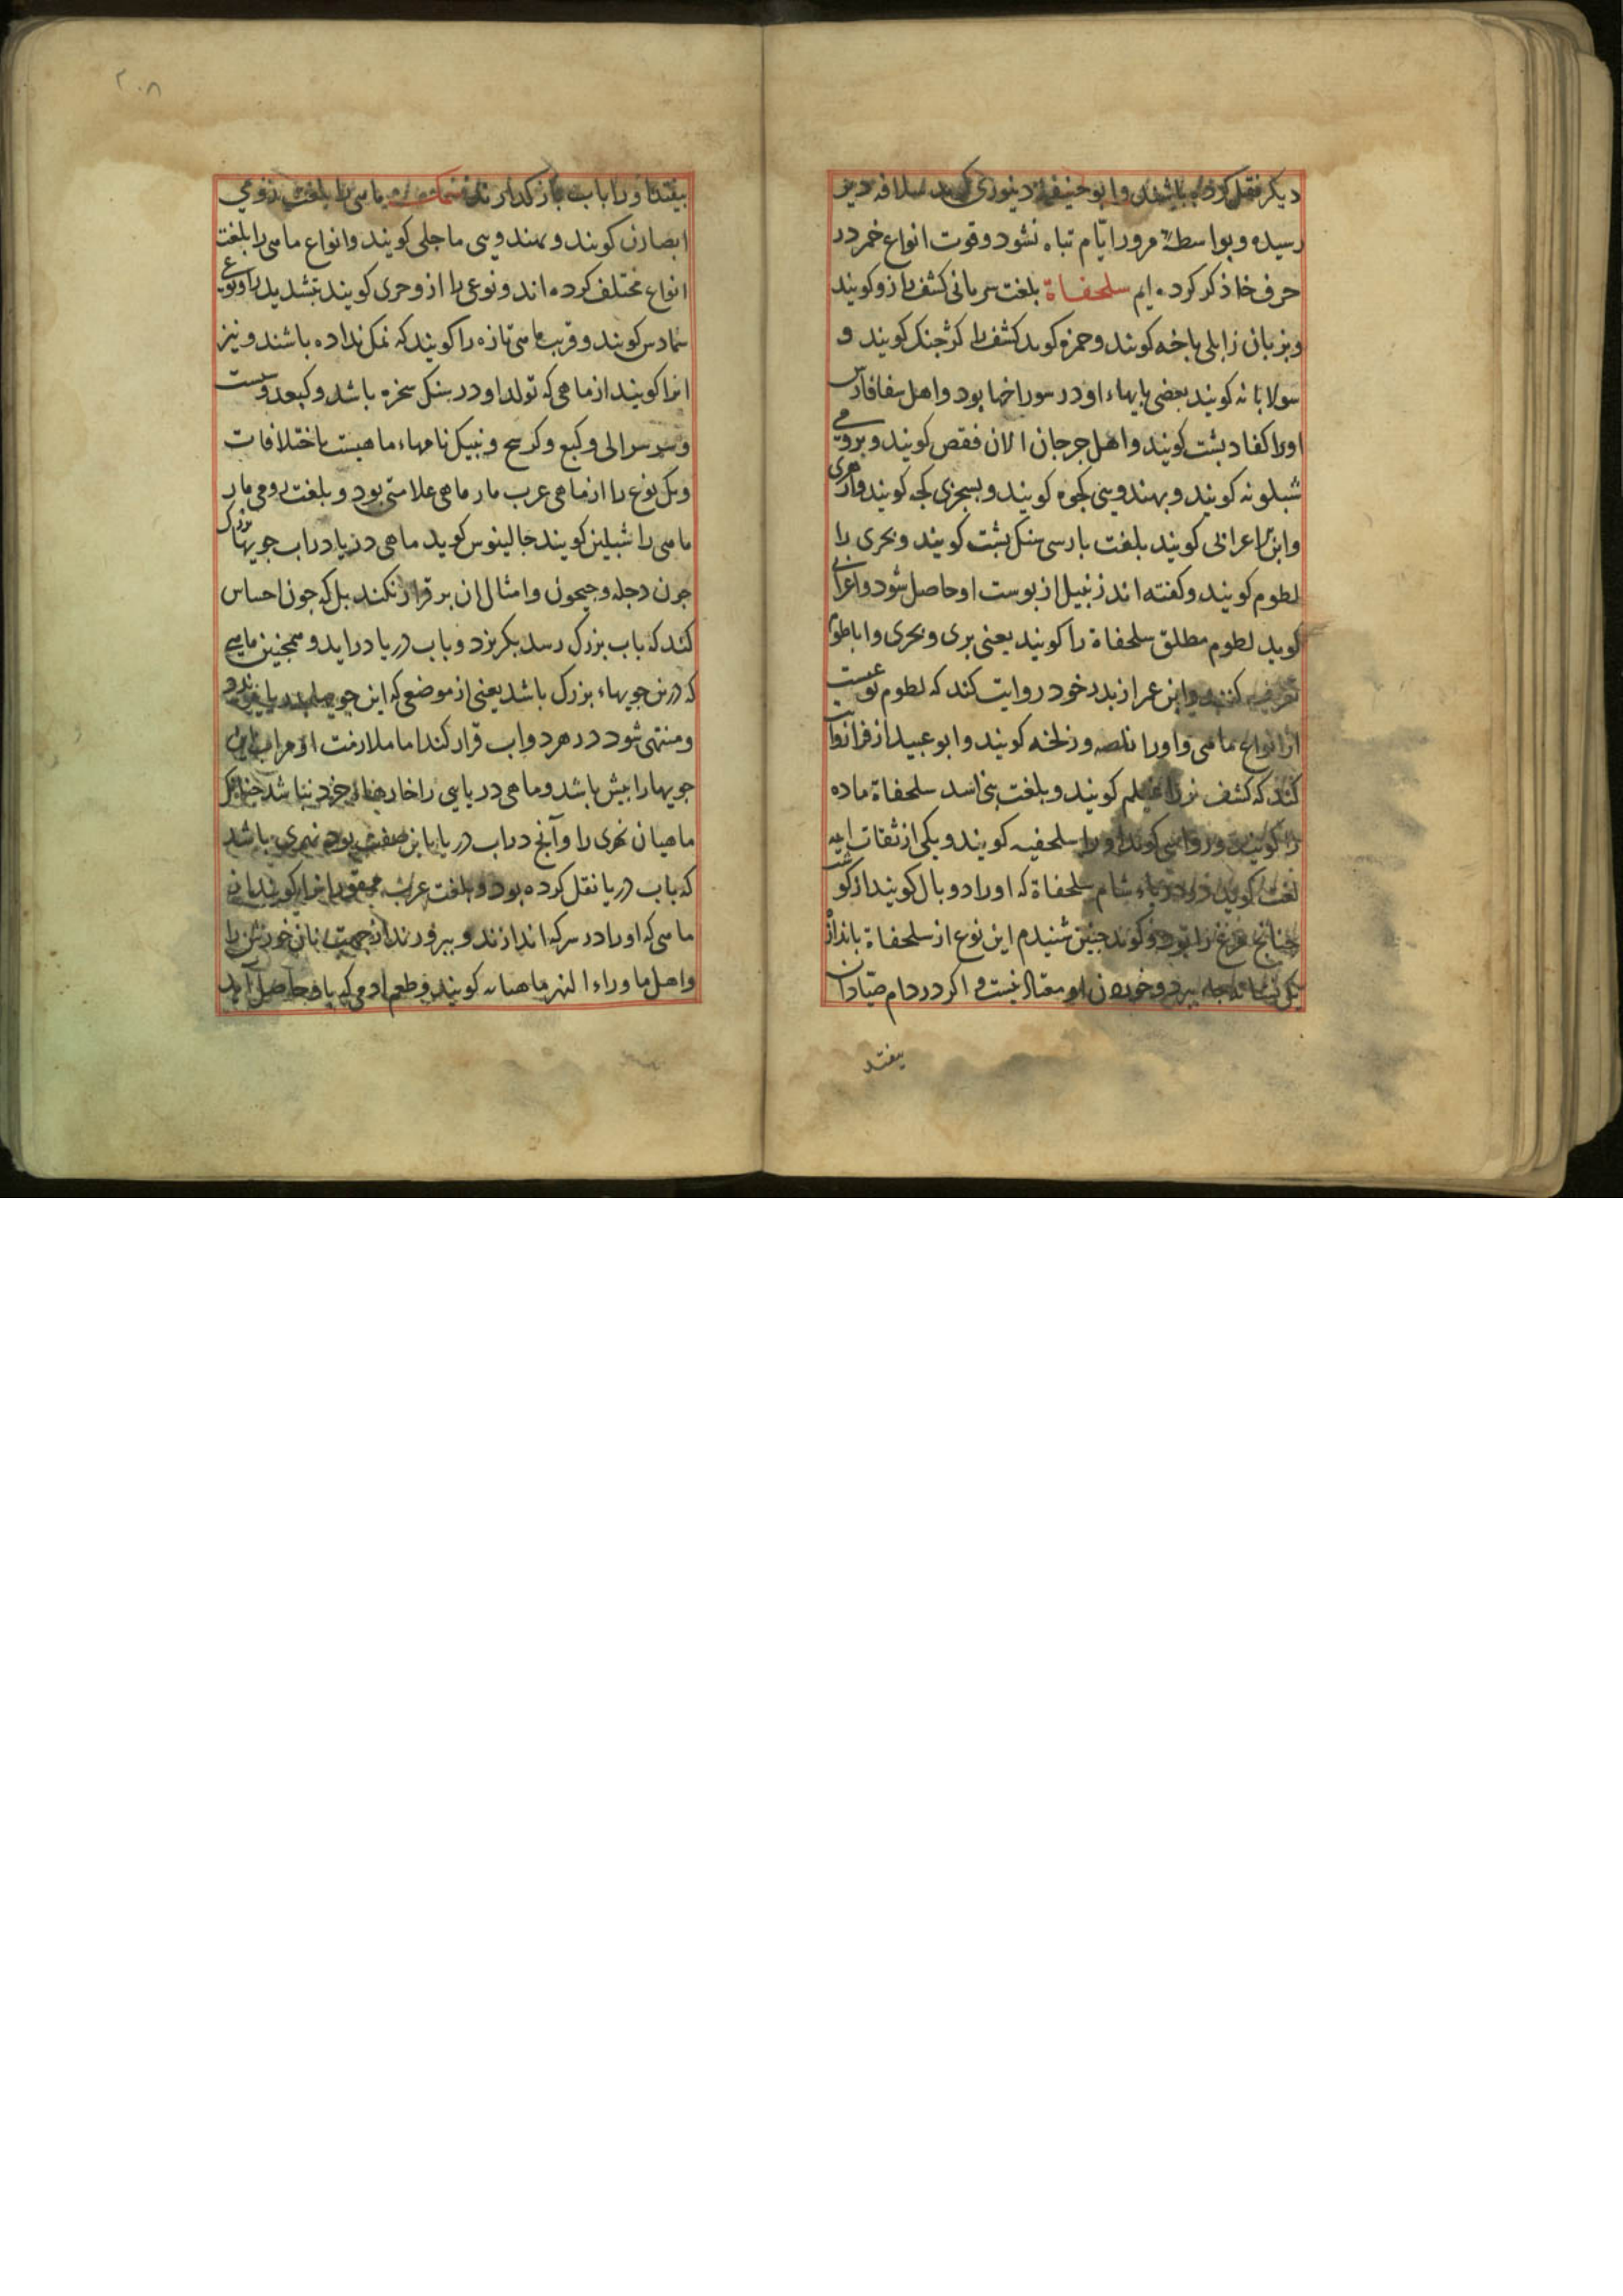 دیکر نقل کرده باشند و ابو حنیفه دینوری کوید سلافه دیر
رسیده و بواسطهٔ مرور ایّام تباه نشود و قوت انواع خمر در
حرف خا ذکر کرده ایم سلحفاة بلغت سریانی کشف را زو کویند
و بزبان زابلی باخه کویند و حمزه کوید کشف را کرجنک کویند و
سولابانه کویند بعضی پایهاء او در سوراخها بود و اهل
اورا کفاد پشت کویند و اهل جرجان الان فقص کویند و برومی
شبلونه کویند و بهندویی کجوه کویند و بسجزی کجه کویند
و ابن اعرابی کویند بلغت پارسی سنک پشت کویند و بحری را
لطوم کویند و کفته اند زنبیل از پوست او حاصل شود و اعرابی
کوید لطوم مطلق سلحفاة را کویند یعنی بری و بحری و
تعریف کنند و ابن عمر از پدر خود روایت کند که لطوم نوعیست
از انواع ماهی و اورا و زلخه کویند و ابو عبید از فرا روایت
کند که کشف نر را غیلم کویند و بلغت بنی اسد سلحفاة ماده
را کویند و رواسی کوید اورا سلحفیه کویند و یکی از ثقات ایمه
لغت کوید در دریاء شام سلحفاة که اورا دو بال کویند از کوشت
چنانچ مرغ را بود و کوید چنین شنیدم این نوع از سلحفاة بانداز
یک و خوردن او معتاد نیست و اکر در دام صیّادان
بیفتد
۲۰۸
بیفتد اورا باب باز کذارند سمک ماهی را بلغت رومی
ابصارن کویند و بهندویی ماجلی کویند و انواع ماهی را بلغت
انواع مختلف کرده اند و نوعی را از و جری کویند بتشدید را و نوعی
کویند و قریب ماهی تازه را کویند که نمک نداده باشند و نیز
انرا کویند از ماهی که تولد او در سنک سخره باشد و کبعد
و کبع و کوسج و نامهاء ماهیست باختلافات
و یک نوع را از ماهی عرب مار ماهی علامتی بود و بلغت رومی مار
ماهی را شبلین کویند جالینوس کوید ماهی دریا در اب جویهاء بزرک
چون دجله و جیحون و امثال ان بر قرار نکند بل که چون احساس
کند که باب بزرک رسد بکریزد و باب دریا در اید و همچنین ماهی
که درین جویهاء بزرک باشد یعنی از موضعی که این جویها
و منتهی شود در هر دو اب قرار کند اما ملازمت او مر اب این
جویها را بیش باشد و ماهی دریایی را خارهاء خرد نباشد چنانک
ماهیان نهری را و آنچ در اب دریا باین صفت بود نهری باشد
که باب دریا نقل کرده بود و بلغت عرب ممقور انرا کویند از
ماهی که اورا در سرکه اندازند و بپرورند از جهت نان خورش را
و اهل ماوراء النهر ماهیانه کویند و طعم او می که یاد حاصل آید